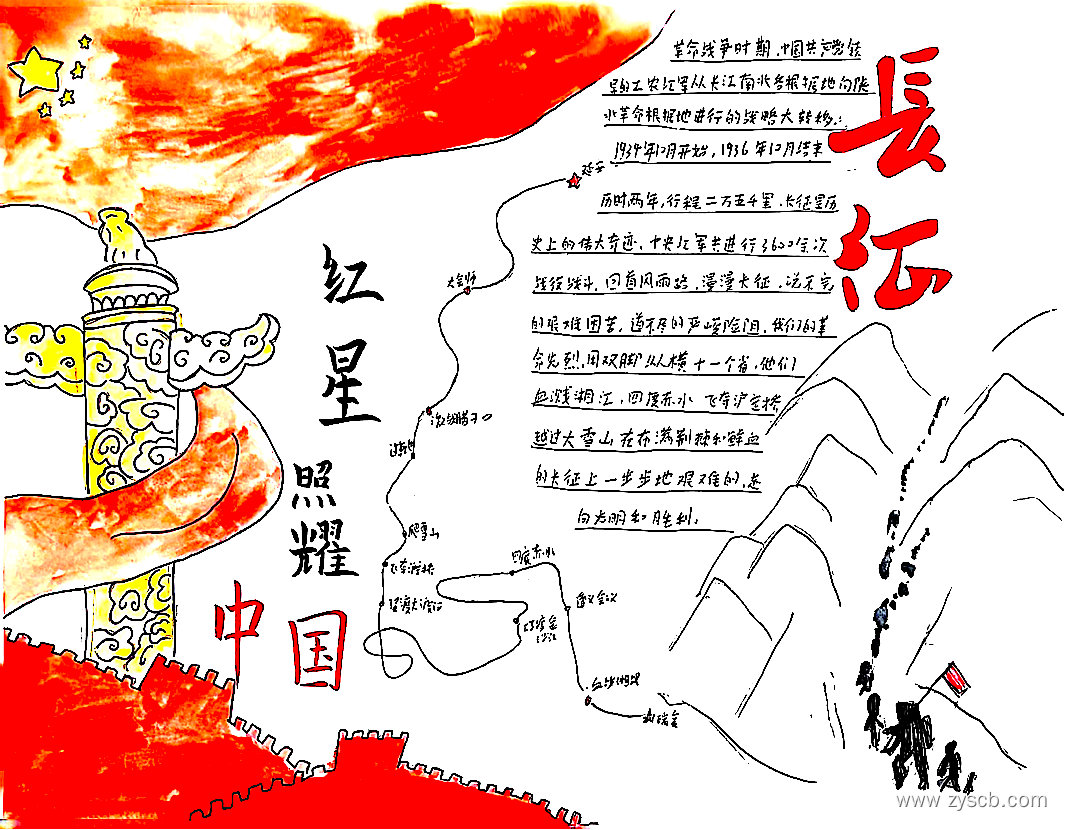 長征
革命战争时期,中国共产党领
导的工农红军从长江南北各根据地向陕
北革命根据地进行的战略大转移.
1934年10月开始,1936年10月结束
历时两年,行程二万五千里.长征是历
史上的伟大奇迹.中央红军共进行了600余次
战役战斗.回首风雨路,漫漫长征,说不完
的艰难困苦,道不尽的严峻险阻,我们的革
命先烈,用双脚纵横十一个省,他们
血溅湘江,四渡赤水 飞夺泸定桥
越过大雪山 在布满荆棘和鲜血
的长征上一步步地艰难的,走
向光明和胜利.
红星照耀中国
延安
大会师
激战腊子口
过草地
爬雪山
飞夺泸定桥
强渡大渡河
四渡赤水
巧渡金
沙江
遵义会议
血战湘江
瑞金
www.zyscb.com